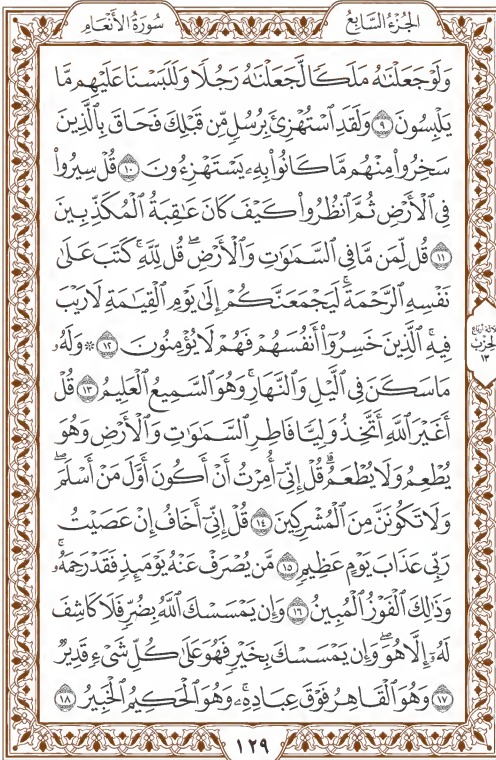 سُورَةُ الأَنْعَامِ
الجُزْءُ السَّابِعُ
وَلَوۡ جَعَلۡنَٰهُ مَلَكٗا لَّجَعَلۡنَٰهُ رَجُلٗا وَلَلَبَسۡنَا عَلَيۡهِم مَّا
يَلۡبِسُونَ ٩ وَلَقَدِ ٱسۡتُهۡزِئَ بِرُسُلٖ مِّن قَبۡلِكَ فَحَاقَ بِٱلَّذِينَ
سَخِرُواْ مِنۡهُم مَّا كَانُواْ بِهِۦ يَسۡتَهۡزِءُونَ ١٠ قُلۡ سِيرُواْ
فِي ٱلۡأَرۡضِ ثُمَّ ٱنظُرُواْ كَيۡفَ كَانَ عَٰقِبَةُ ٱلۡمُكَذِّبِينَ
١١ قُل لِّمَن مَّا فِي ٱلسَّمَٰوَٰتِ وَٱلۡأَرۡضِۖ قُل لِّلَّهِۚ كَتَبَ عَلَىٰ
نَفۡسِهِ ٱلرَّحۡمَةَۚ لَيَجۡمَعَنَّكُمۡ إِلَىٰ يَوۡمِ ٱلۡقِيَٰمَةِ لَا رَيۡبَ
فِيهِۚ ٱلَّذِينَ خَسِرُوٓاْ أَنفُسَهُمۡ فَهُمۡ لَا يُؤۡمِنُونَ ١٢ ۞ وَلَهُۥ
مَا سَكَنَ فِي ٱلَّيۡلِ وَٱلنَّهَارِۚ وَهُوَ ٱلسَّمِيعُ ٱلۡعَلِيمُ ١٣ قُلۡ
أَغَيۡرَ ٱللَّهِ أَتَّخِذُ وَلِيّٗا فَاطِرِ ٱلسَّمَٰوَٰتِ وَٱلۡأَرۡضِ وَهُوَ
يُطۡعِمُ وَلَا يُطۡعَمُۗ قُلۡ إِنِّيٓ أُمِرۡتُ أَنۡ أَكُونَ أَوَّلَ مَنۡ أَسۡلَمَۖ
وَلَا تَكُونَنَّ مِنَ ٱلۡمُشۡرِكِينَ ١٤ قُلۡ إِنِّيٓ أَخَافُ إِنۡ عَصَيۡتُ
رَبِّي عَذَابَ يَوۡمٍ عَظِيمٖ ١٥ مَّن يُصۡرَفۡ عَنۡهُ يَوۡمَئِذٖ فَقَدۡ رَحِمَهُۥۚ
وَذَٰلِكَ ٱلۡفَوۡزُ ٱلۡمُبِينُ ١٦ وَإِن يَمۡسَسۡكَ ٱللَّهُ بِضُرّٖ فَلَا كَاشِفَ
لَهُۥٓ إِلَّا هُوَۖ وَإِن يَمۡسَسۡكَ بِخَيۡرٖ فَهُوَ عَلَىٰ كُلِّ شَيۡءٖ قَدِيرٞ
١٧ وَهُوَ ٱلۡقَاهِرُ فَوۡقَ عِبَادِهِۦۚ وَهُوَ ٱلۡحَكِيمُ ٱلۡخَبِيرُ ١٨
ثلاثة أرباع
الحزب
١٣
١٢٩